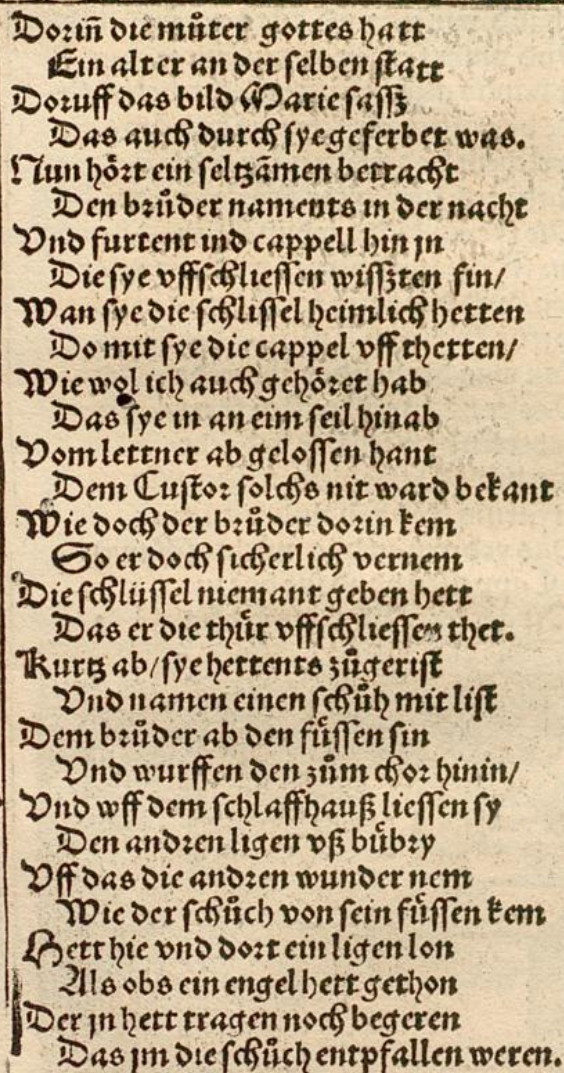 Dorin̄ die můter gottes hatt
Ein alter an der selben statt
Doruff das bild Marie sassz
Das auch durch sye geferbet was.
Nun hört ein seltzāmen betracht
Den brůder naments in der nacht
Vnd furtent ind cappell hin jn
Die sye vffschliessen wissten fin/
Wan sye die schlissel heimlich hetten
Do mit sye die cappel vff thetten/
Wie wol ich auch gehöret hab
Das sye in an eim seil hinab
Vom lettner ab gelossen hant
Dem Custor solchs nit ward bekant
Wie doch der brůder dorin kem
So er doch sicherlich vernem
Die schlüssel niemant geben hett
Das er die thür vffschliessen thet.
Kurtz ab/sye hettents zůgerist
Vnd namen einen schůh mit list
Dem brůder ab den füssen sin
Vnd wurffen den zům chor hinin/
Vnd vff dem schlaffhauß liessen sy
Den andren ligen vß bübry
Vff das die andren wunder nem
Wie der schůch von sein füssen kem
Hett hie vnd dort ein ligen lon
Als obs ein engel hett gethon
Der jn hett tragen noch begeren
Das jm die schůch entpfallen weren.